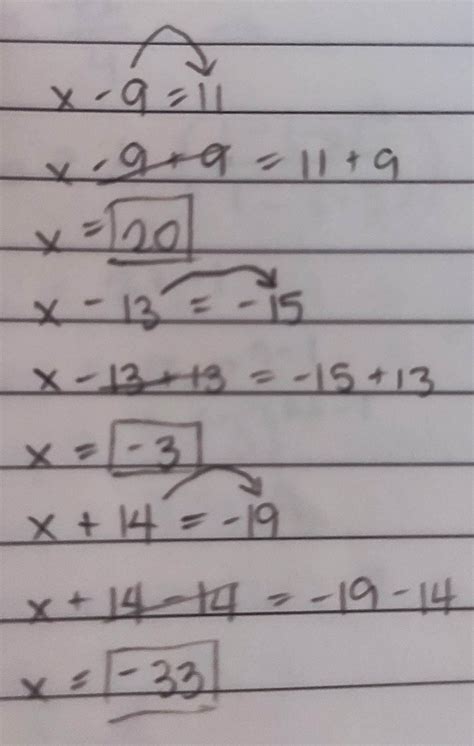 x - 9 = 11
x - 9 + 9 = 11 + 9
x = 20
x - 13 = -15
x - 13 + 13 = -15 + 13
x = -3
x + 14 = -19
x + 14 - 14 = -19 - 14
x = -33